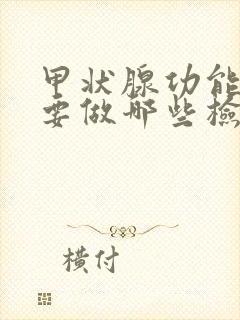 甲状腺功能
要做哪些检
横付